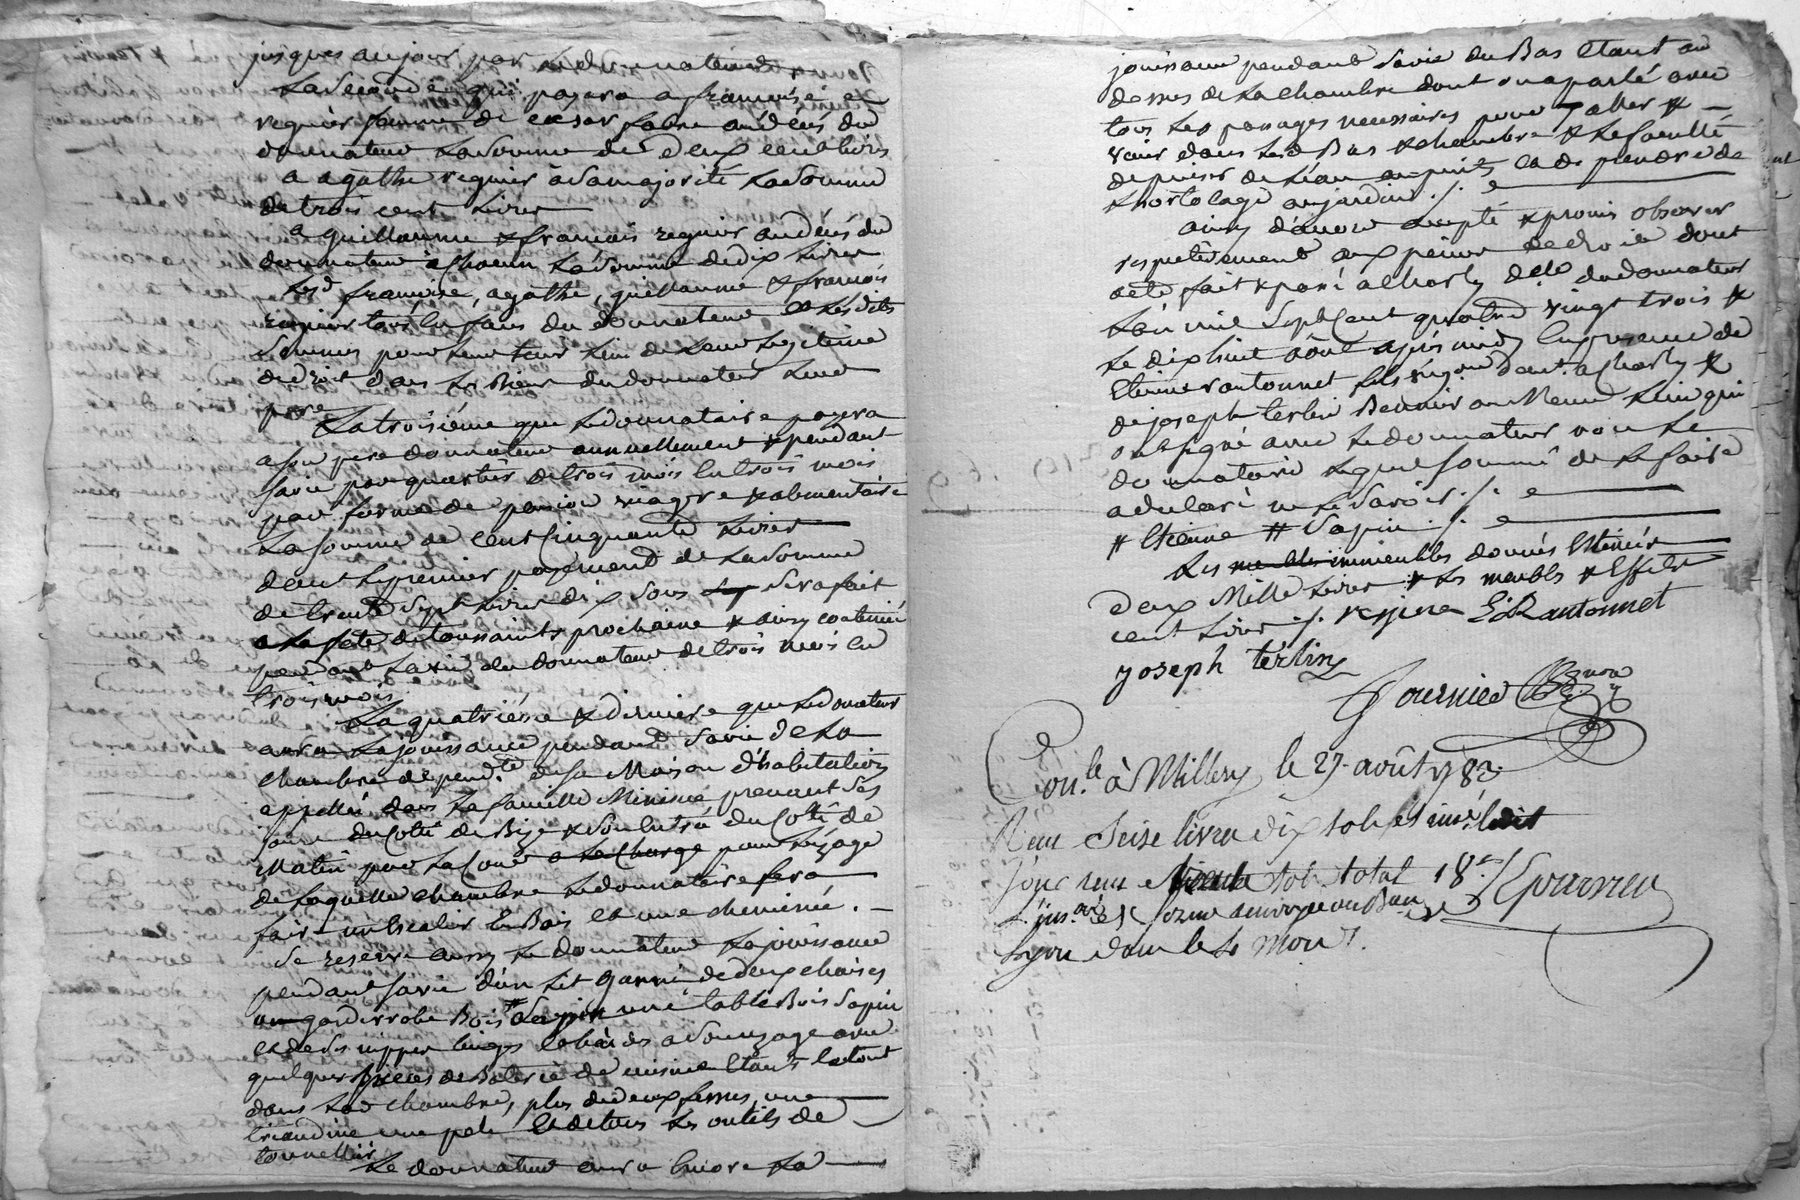 jusques aujour par led. donnateur
La seconde qui payera a francoise
regnier femme de cesar fabre au décés du
donnateur la somme de deux cent livres
a agathe regnier à sa majorité la somme
de trois cent livres
a guillaume & francois regnier au décés du
donnateur à chacun la somme de dix livres
lesd francoise, agathe, guillaume & francois
regnier tous enfans du donnateur & lesdites
sommes pour leur tenir lieu de leur legitime
de droit dans les biens du donnateur leur
pere
La troisiéme que le donnataire payera
a son pere donnateur annuellement & pendant
sa vie par quartier de trois mois en trois mois
par forme de pension viagere & alimentaire
la somme de cent cinquante livres
dont le premier payement de la somme
de trente sept livres dix sous sera fait
a la fete de toussaints prochaine & ainsy continué
pendant la vie du donnateur de trois mois en
trois mois
La quatriéme & derniere que le donnateur
aura la jouissance pendant sa vie de la
chambre dépend.te de sa maison d'habitation
appellée dans la famille prenant ses
jours du coté de Bize & son entrée du coté de
matin pour la cour a la charge pour l'uzage
de laquelle chambre le donnataire fera
faire un escalier en Bois et une cheminée.
Se reserve aussy le donnateur la jouissance
pendant sa vie d'un lit garni de deux chaises
un garderobe Bois # Sapin une table Bois Sapin
et de ses nippes linges & hardes a son uzage avec
quelques pieces de Baterie de cuisine étant le tout
dans lad chambre, plus de deux une
une pele et de tous les outils de
tonnellier
Le donnateur aura encore la
jouissance pendant sa vie du Bas étant au
dessus de la chambre dont on a parlé avec
tous les passages necessaires pour y aller &
venir dans led Bas & chambre & la faculté
de puiser de l'eau au puits et de prendre de
l'hortolage au jardin ./.
ainsy d'accord accepté & promis observer
respectivement aux peines de droit dont
acte fait & passé à Charly d.lle du donnateur
l'an mil sept cent quatre vingt trois &
le dix huit août après midy en presence de
Etienne rantonnet fils vigneron dem.t a Charly &
de joseph terlin au lieu qui
ont signé avec le donnateur non le
donnataire lequel sommé de le faire
a déclaré ne le savoir ./.
# Etienne # Sapin ./.
Les meubles immeubles donnés estimés
deux mille livres & les meubles & effets
cent livres ./. regnier E. Rantonnet
joseph terlin
fournier
Con.lé à Millery le 27. août 1783.
Reçu seise livres dix sols et ledit
Jour reçu trente sols total 18
fournier
Lyon dans les 4 mois.